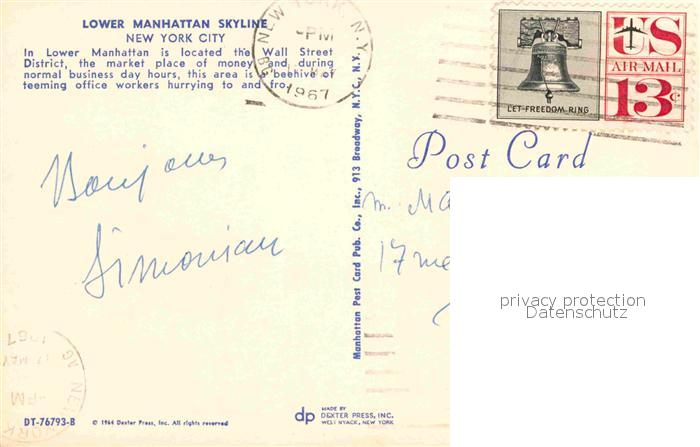 LOWER MANHATTAN SKYLINE
NEW YORK CITY
In Lower Manhattan is located the Wall Street
District, the market place of money and during
normal business day hours, this area is a beehive of
teeming office workers hurrying to and fro.
NEW YORK, N.Y.
PM
1967
LET FREEDOM RING
US
AIR MAIL
13c
Post Card
Bonjour
Simonian
Manhattan Post Card Pub. Co., Inc., 913 Broadway, N.Y.C., N.Y.
M. Ma
17
privacy protection
Datenschutz
1967
MAY
PM
DT-76793-B
© 1964 Dexter Press, Inc. All rights reserved
dp
MADE BY
DEXTER PRESS, INC.
WEST NYACK, NEW YORK